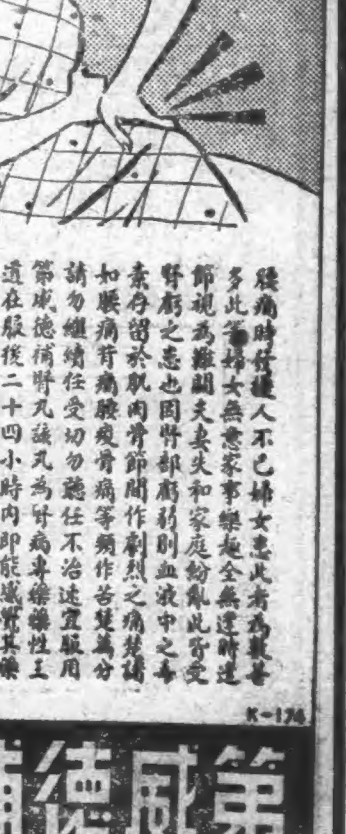 腰痛時擾人不已婦女患此者為數甚
多此等婦女無意家事樂趣全無時過
節視為難關夫妻失和家庭紛亂此皆受
腎虧之患也因腎部虧弱則血液中之毒
素存留於肌肉骨節間作劇烈之痛楚諸
如腰痛背痛腰痠骨痛等頻作苦楚萬分
請勿繼續任受切勿聽任不治速宜服用
第威德補腎丸該丸為腎病專藥性王
道在服後二十四小時内即能腎其藥
K-174
第威德補